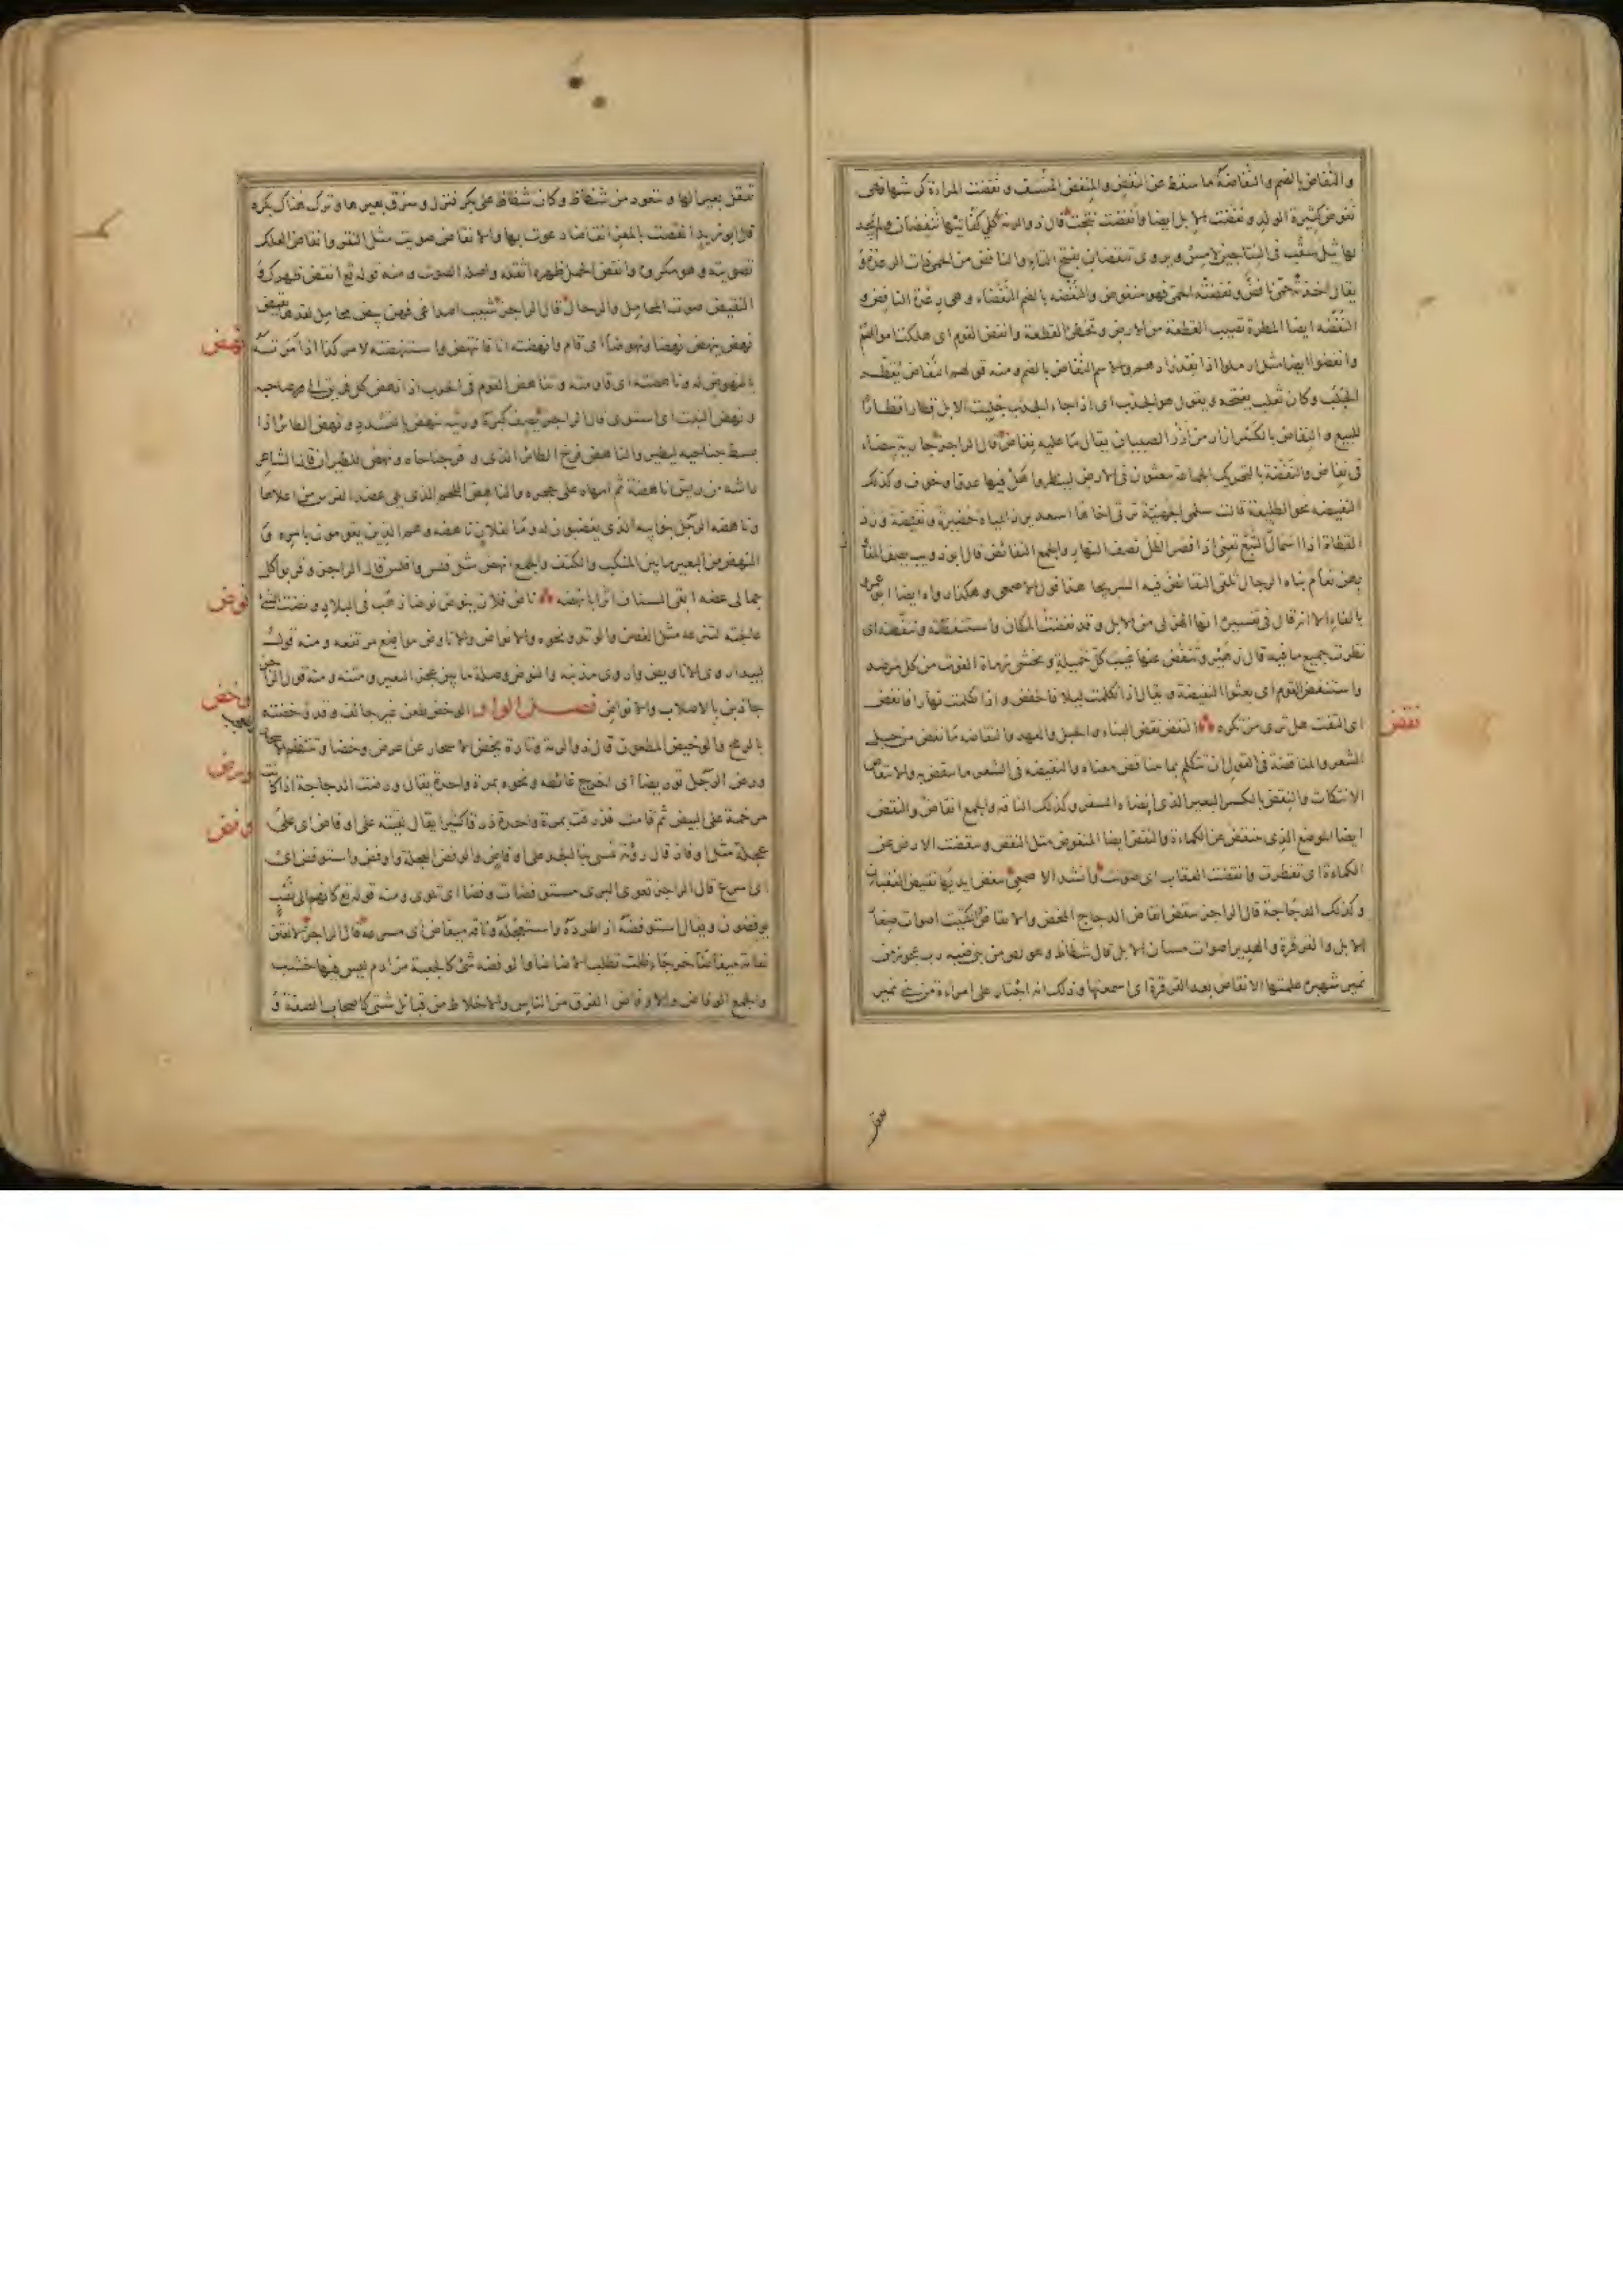 والنُفاض بالضم والنُفاضة ما سقط عن النفض والمنفض المنسف ونفضت المرأة كرشها فهى
نفوض كثيرة الولد ونفضت الابل ايضا وانفضت نتجت قال ذو الرمة كلا كفأتيها تنفضان ولم يجد
لها ثيل سقب فى النتاجين لامس ويروى تنفضان بفتح التاء والنافض من الحمى ذات الرعدة و
يقال اخذته حمى نافض ونفضته الحمى فهو منفوض والنفضة بالضم النفضاء وهى رعدة النافض و
النفضة ايضا المطرة تصيب القطعة من الارض وتخطئ القطعة وانفض القوم اى هلكت اموالهم
وانفضوا ايضا مثل ارملوا اذا نفد زادهم والاسم النفاض بالضم ومنه قولهم النفاض يقطر
الجلب وكان ثعلب يفتحه ويقول هو الجدب اى اذا جاء الجدب جلبت الابل قطارا قطارا
للبيع والنفاض بالكسر ازار من أزر الصبيان يقال ما عليه نفاض قال الراجز جارية بيضاء
فى نفاض والنفضة بالتحريك الجماعة يبعثون فى الارض لينظروا هل فيها عدو او خوف وكذلك
النفيضة نحو الطليعة قالت سلمى الجهنية ترثى اخاها اسعد يرد المياه حضيرة ونفيضة ورد
القطاة اذا اسمأل التبع تعنى اذا قصر الظل نصف النهار والجمع النفائض قال ابو ذويب يصف المفا
بهن نعام بناه الرجال تلقى النفائض فيه السريحا هذا قول الاصمعى وهكذا رواه ايضا ابو عمرو
بالفاء الا انه قال فى تفسيره انها الهزلى من الابل وقد نفضت المكان واستنفضته وتنفضته اى
نظرت جميع ما فيه قال زهير وتنفض عنها غيب كل خميلة وتخشى رماة الغوث من كل مرصد
واستنفض القوم اى بعثوا النفيضة ويقال اذا تكلمت ليلا فاخفض واذا تكلمت نهارا فانفض
اى التفت هل ترى من تكره النقض نقض البناء والحبل والعهد والنقاضة ما نقض من حبل
نقض
الشعر والمناقضة فى القول ان تتكلم بما يتناقض معناه والنقيضة فى الشعر ما ينقض به والانتقاض
الانتكاث والنقض بالكسر البعير الذى انضاه السفر وكذلك الناقة والجمع انقاض والنقض
ايضا الموضع الذى ينتقض عن الكماءة والنقض ايضا المنقوض مثل النقض وتنقضت الارض عن
الكماءة اى تفطرت وانقضت العقاب اى صوتت وانشد الاصمعى تنقض ايديها نقيض العقبان
وكذلك الدجاجة قال الراجز تنقض انقاض الدجاج المخض والانقاض والكتيت اصوات صغار
الابل والقرقرة والهدير اصوات مسان الابل قال شظاظ وهو لص من بنى ضبة رب عجوز من
نمير شهبره علمتها الانقاض بعد القرقرة اى اسمعتها وذلك انه اجتاز على امراءة من بنى نمير
تعقل بعيرا لها وتتعوذ من شظاظ وكان شظاظ على بكر فنزل وسرق بعيرها وترك هناك بكره
قال ابو زيد انقضت بالمعز انقاضا دعوت بها والانقاض صويت مثل النقر وانقاض العلك
تصويته وهو مكروه وانقض الحمل ظهره اثقله واصله الصوت ومنه قوله تع انقض ظهرك و
النقيض صوت المحامل والرحال قال الراجز شيب اصداغى فهن بيض محامل لقدها نقيض
نهض
نهض ينهض نهضا ونهوضا اى قام وانهضته انا فانتهض واستنهضته لامر كذا اذا امرته
بالنهوض له وناهضته اى قاومته وتناهض القوم فى الحرب اذا نهض كل فريق الى صاحبه
ونهض النبت اى استوى قال الراجز يصف كبره ورثية تنهض بالتشدد ونهض الطائر اذا
بسط جناحيه ليطير والناهض فرخ الطائر الذى وفر جناحاه ونهض للطيران قال الشاعر
راشه من ريش ناهضة ثم امهاه على حجره والناهض اللحم الذى يلى عضد الفرس من اعلاها
وناهضة الرجل بنو ابيه الذى يغضبون له وما لفلان ناهضة وهم الذين يقومون بامره و
النهض من البعير ما بين المنكب والكتف والجمع انهض مثل فلس وافلس قال الراجز وقربوا كل
نوض
جمالى عضه ابقى السناف اثرا بانهضه ناض فلان ينوض نوضا ذهب فى البلاد ونضت الشئ
عالجته لتنزعه مثل الغصن والوتد ونحوه والانواض والاناويض مواضع مرتفعة ومنه قول
لبيد اروى الاناويض واروى مذنبه والنوض وصلة ما بين عجز البعير ومتنه ومنه قول الراجز
وخض
جاذبن بالاصلاب والانواض فصل الواو الوخض طعن غير جائف وقد وخضته
بالرمح والوخيض المطعون قال ذو الرمة وتارة يخض الاسحار عن عرض وخضا وتنتظم
ورض
ورض الرجل توريضا اى اخرج غائطه ونحوه بمرة واحدة يقال ورضت الدجاجة اذا كانت
وفض
مرخمة على البيض ثم قامت فذرقت بمرة واحدة ذرقا كثيرا يقال لقيته على اوفاض اى على
عجلة مثل اوفاز قال رؤبة تمسى بنا الجد على اوفاض واوفض العجلة واوفض واستوفض اى
اى اسرع قال الراجز تعوى البرى مستوفضات وفضا اى تلوى ومنه قوله تع كانهم الى نصب
يوفضون ويقال استوفضه اذا طرده واستعجله وناقة ميفاض اى مسرعة قال الراجز لانعتن
نعامة ميفاضا خرجاء ظلت تطلب الاضاضا والوفضة شئ كالجعبة من ادم ليس فيها خشب
والجمع الوفاض والاوفاض الفرق من الناس والاخلاط من قبائل شتى كاصحاب الصفة و
تعقل